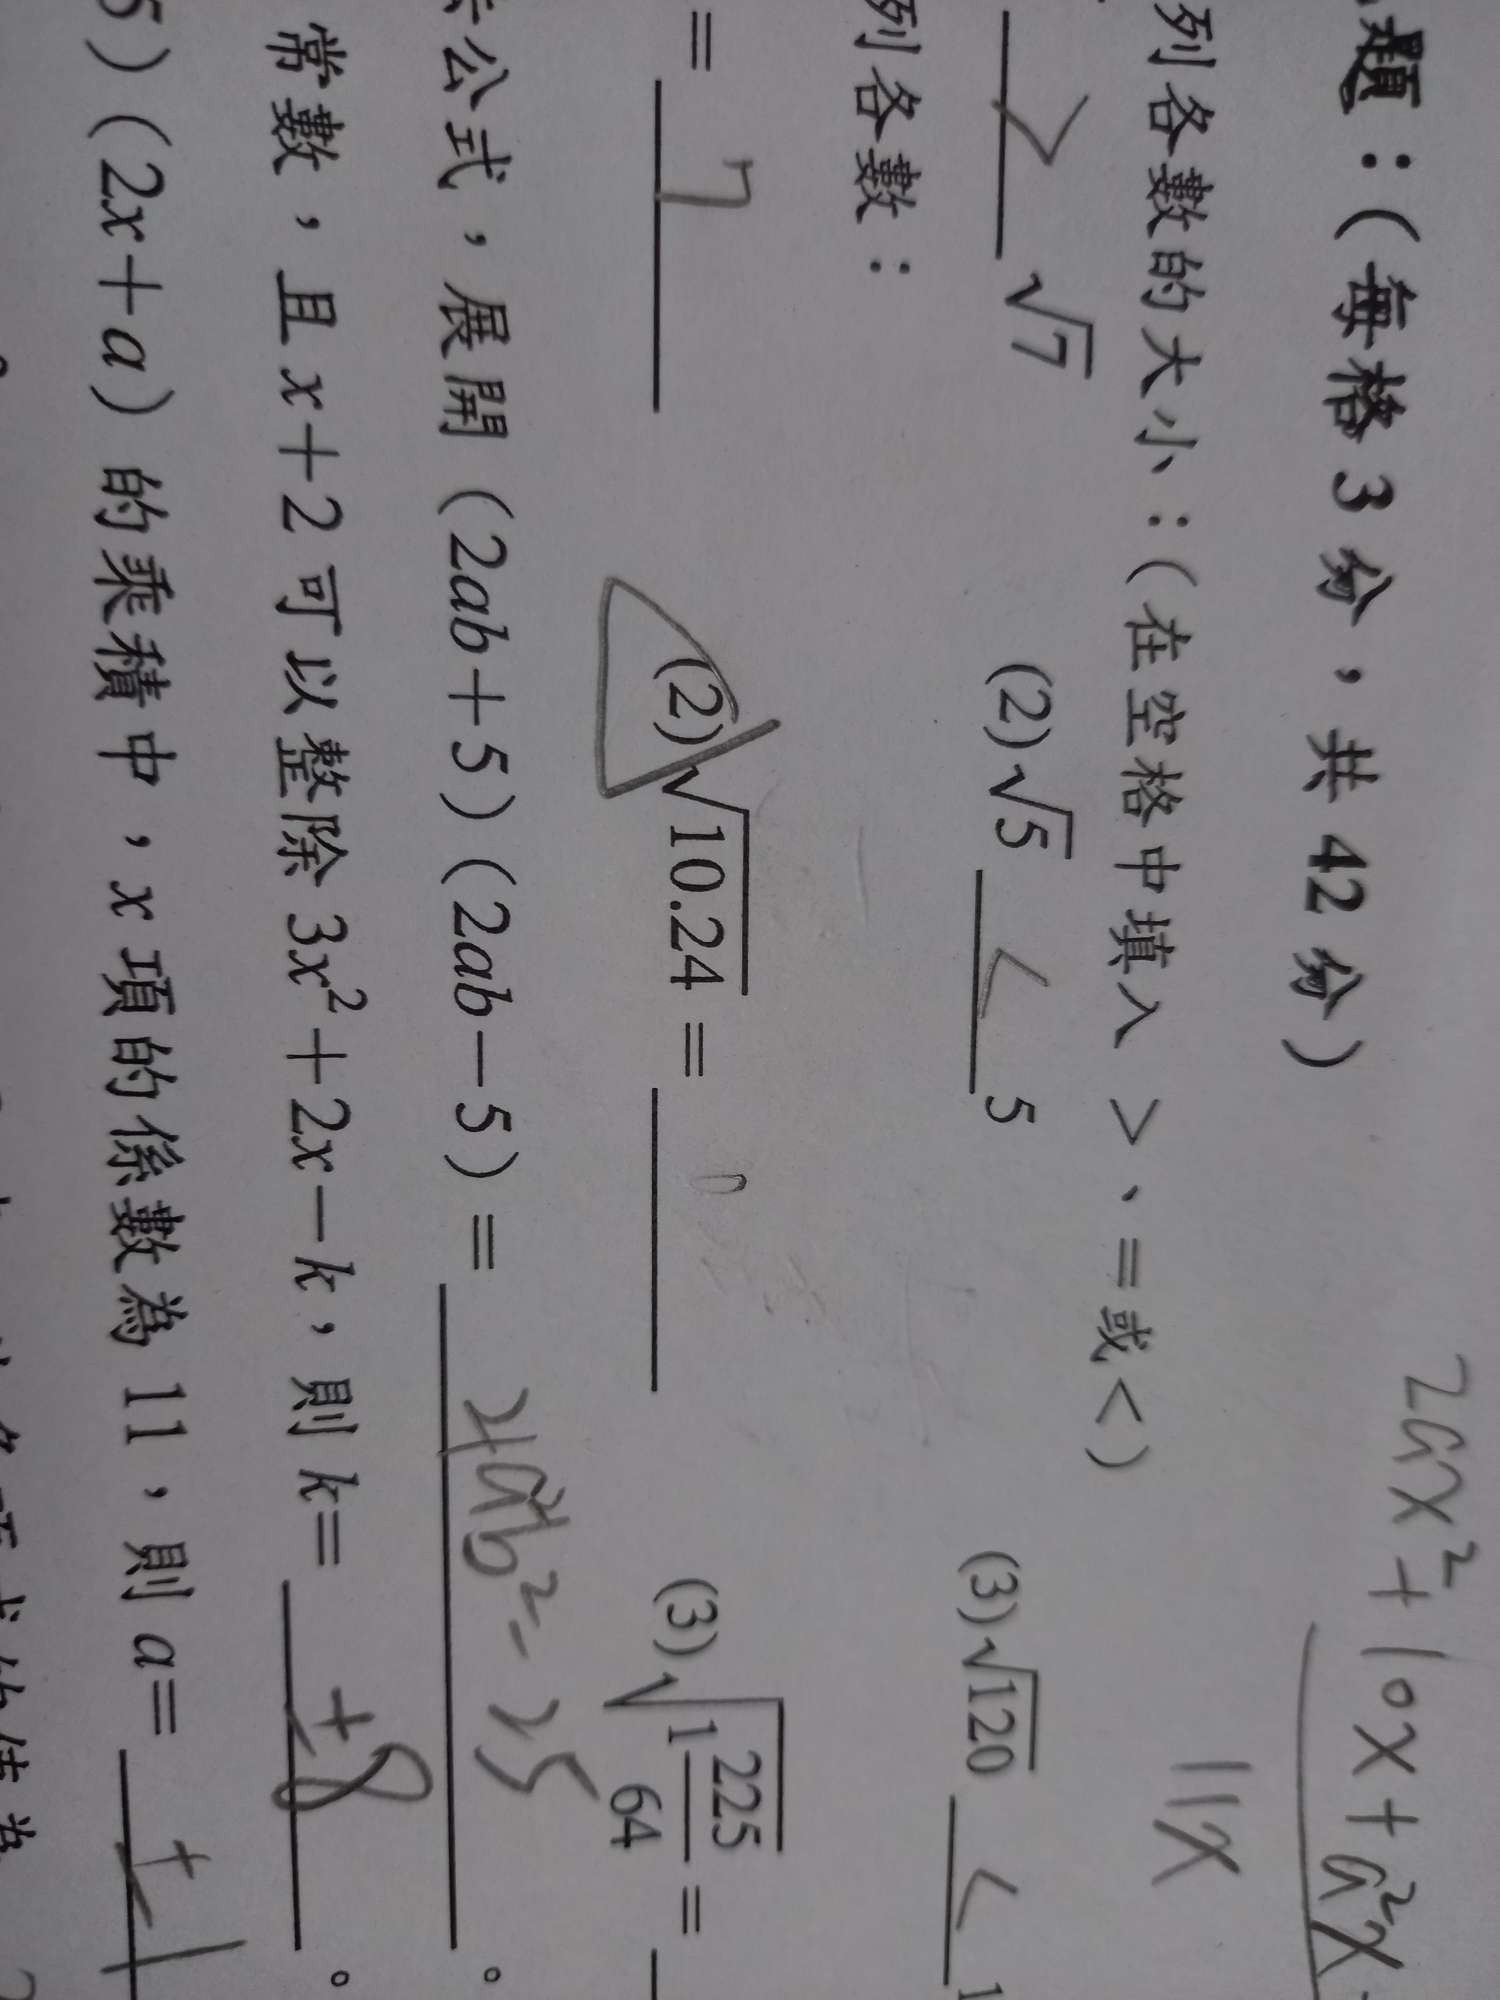 題：(每格 3 分，共 42 分)
2ax²+10x+a²x
列各數的大小：(在空格中填入 >、=或<)
11x
> √7
(2)√5 < 5
(3)√120 < 1
列各數：
= 7
(2)√10.24 =
(3)√1 225/64 =
公式，展開 (2ab+5)(2ab−5) = 4a²b²-25 。
常數，且 x+2 可以整除 3x²+2x−k，則 k= +8 。
5)(2x+a) 的乘積中，x 項的係數為 11，則 a= ±1